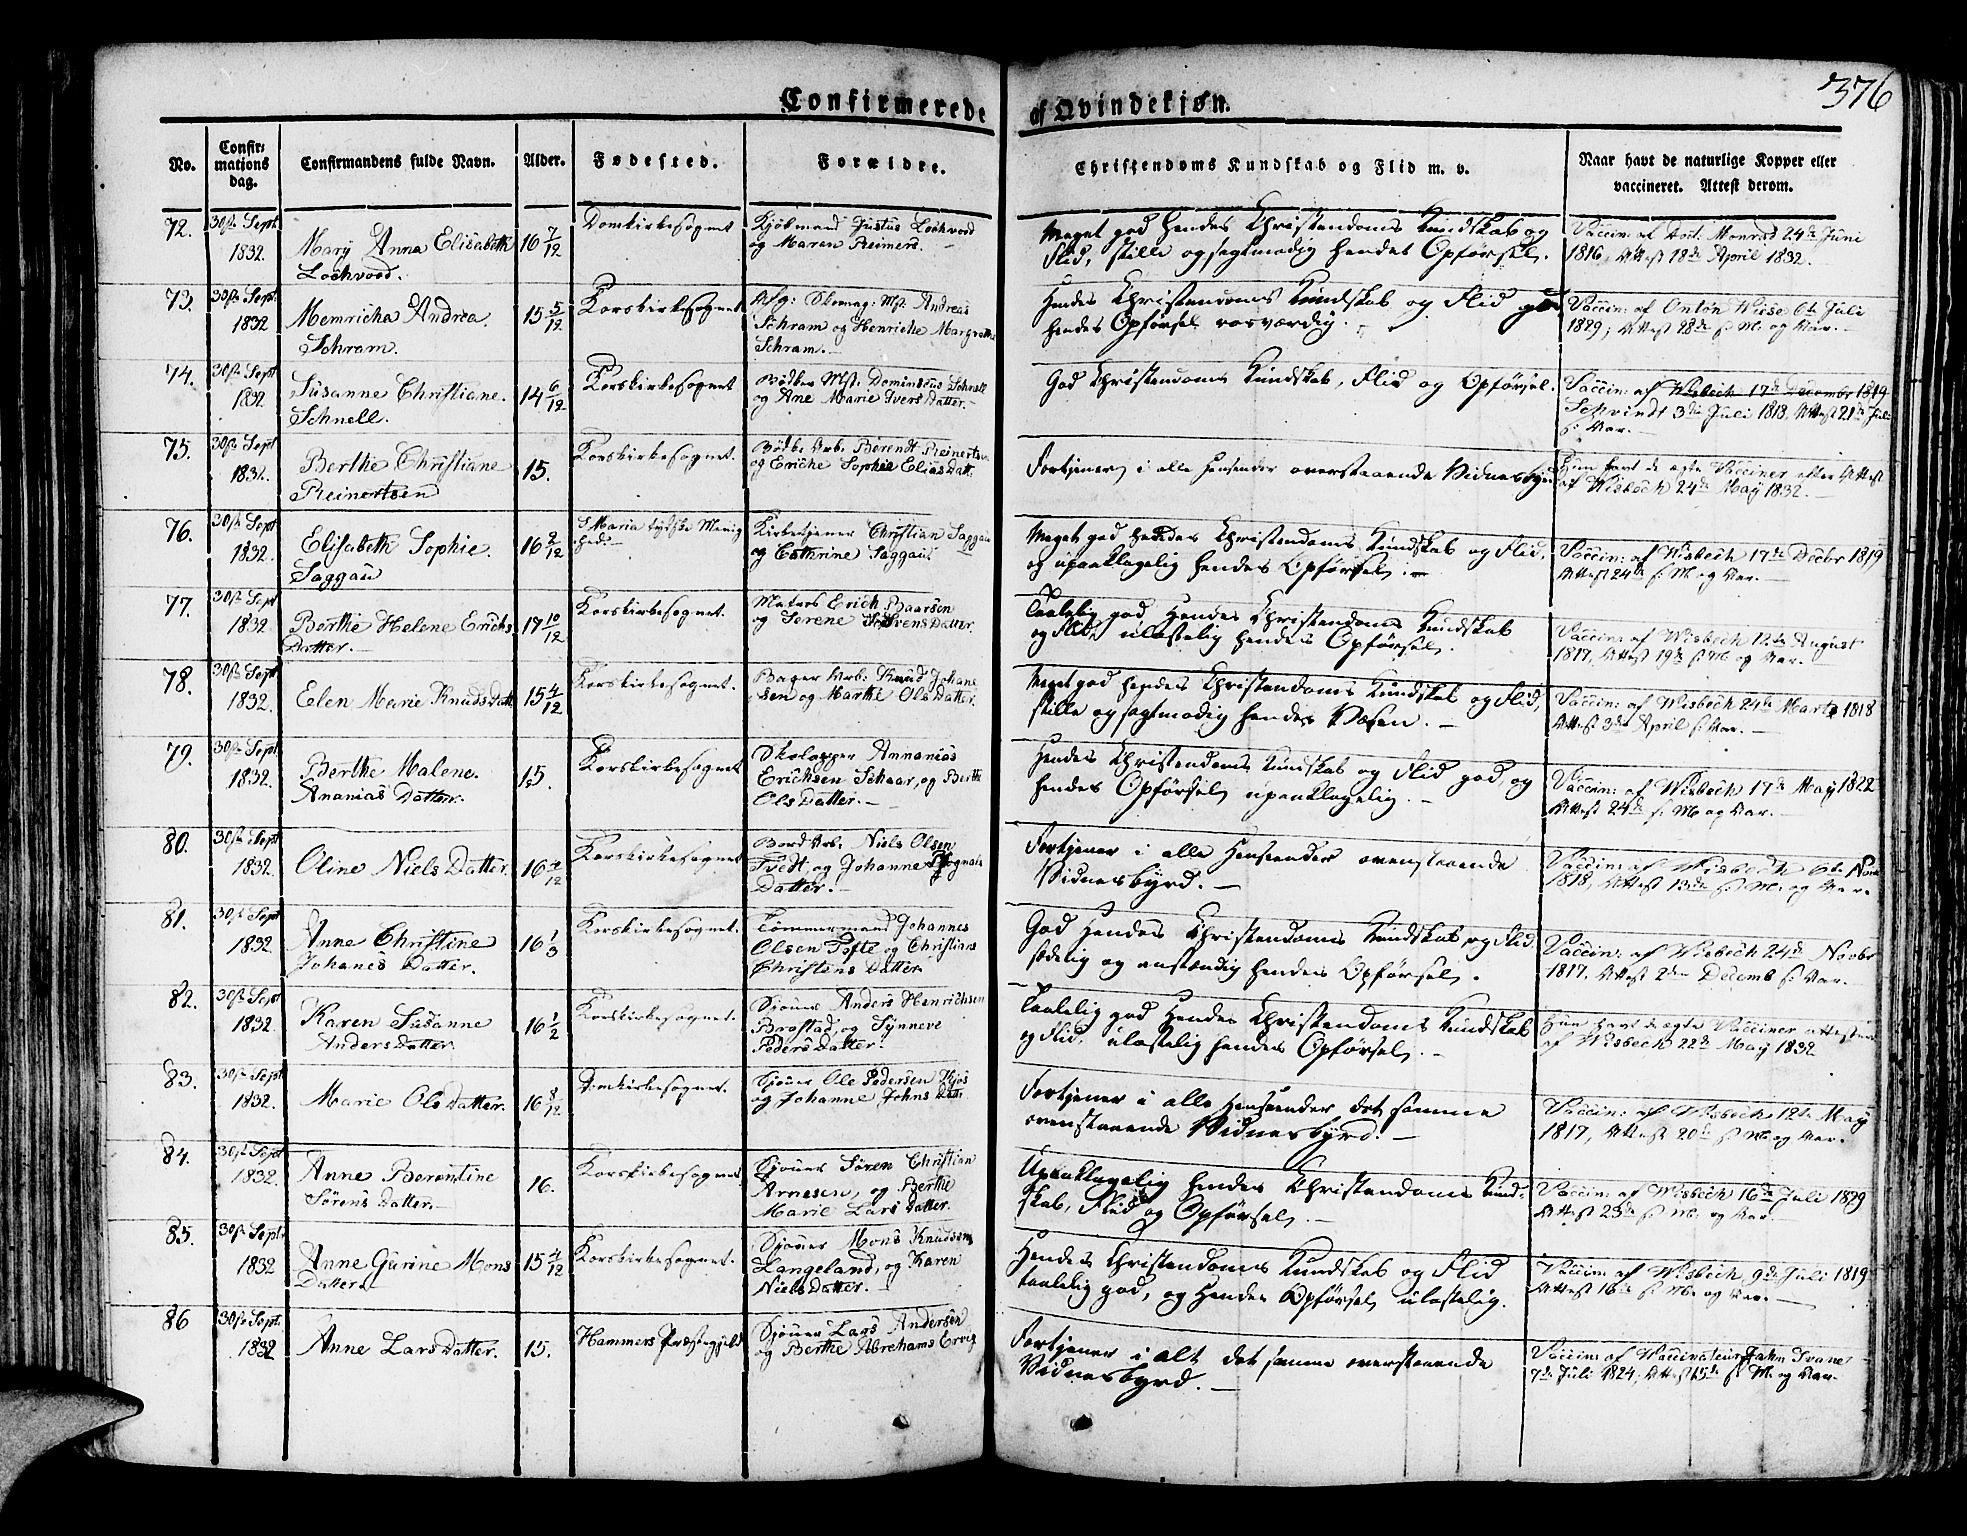 376
Confirmerede af Qvindekjøn.
No. Confirmations dag. Confirmandens fulde Navn. Alder. Fødested. Forældre. Christendoms Kundskab og Flid m. v. Naar havt de naturlige Kopper eller vaccineret. Attest derom.
72. 30te Sept 1832. Mary Anna Elisabeth 16 7/12 Domkirkesognet Kjøbmand Justus Lockvood
Lockvood. og Maren Reiners.
Meget god hendes Christendoms Kundskab og
Flid, stille og sagtmodig hendes Opførsel.
Vaccin: af Doct. Monrad 24de Juni
1816, Attest 18de April 1832.
73. 30te Sept. 1832 Memricha Andrea 15 5/12 Korskirkesognet Afg: Skomag: Mst. Andreas
Schram. Schram og Henriche Margrethe
Schram.
Hendes Christendoms Kundskab og Flid god
hendes Opførsel rosværdig.
Vaccin: af Anton Wiese 6te Juli
1829; Attest 28de s. M. og Aar.
74. 30te Sept 1832 Susanne Christiane 14 6/12 Korskirkesognet Bødker Mst. Dominicus Schnell
Schnell. og Ane Marie Ivers Datter.
God Christendoms Kundskab, Flid og Opførsel.
Vaccin: af Wisbech 17de Decembr 1819
Schvindt 3die Juli 1818, Attest 21de Juli
s: Aar.
75. 30te Sept 1832. Berthe Christiane 15. Korskirkesognet. Bødk. Arb. Berendt Reinertsen
Reinertsen og Eriche Sophie Elias Datt.
Fortjener i alle Henseender overstaaende Vidnesbyrd
Hun havt de ægte Vacciner efter Attest
af Wisbech 24de May 1832.
76. 30te Sept 1832. Elisabeth Sophie 16 2/12 St Maria tydske Menig Kirketjener Christian Saggau
Saggau hed. og Cathrine Saggau
Meget god hendes Christendoms Kundskab og Flid,
og upaaklagelig hendes Opførsel.
Vaccin: af Wisbech 17de Decbr 1819
Attest 24de s: M. og Aar.
77. 30te Sept 1832 Berthe Helene Erichs 17 10/12 Korskirkesognet. Matros Erich Baarsen
Datter. og Serene Iversdatter.
Taalelig god Hendes Christendoms Kundskab
og Flid, ulastelig hendes Opførsel.
Vaccin: af Wisbech 12te August
1817, Attest 19de s: M og Aar.
78. 30te Sept 1832. Elen Marie Knuds Datt 15 4/12 Korskirkesognet. Bager Arb. Knud Johane
sen og Marthe Ols Datter.
Meget god hendes Christendoms Kundskab og Flid,
stille og sagtmodig hendes Væsen.
Vaccin: af Wisbech 24de Marts 1818
Attest 3die April s: Aar.
79. 30te Sept 1832. Berthe Malene 15. Korskirkesognet Annanias
Ananias Datter. Erichsen Schaar, og Berthe
Ols Datter.
Hendes Christendoms Kundskab og Flid god, og
hendes Opførsel upaaklagelig.
Vaccin: af Wisbech 17de May 1822
Attest 24de s: M og Aar.
80. 30te Sept 1832. Oline Niels Datter. 16 4/12 Korskirkesognet Bord Arb. Niels Olsen
Tvedt, og Johanne
Datter.
Fortjener i alle Henseender ovenstaaende
Vidnesbyrd.
Vaccin: af Wisbech 6te Novbr
1818, Attest 13de s: M. og Aar.
81. 30te Sept 1832. Anne Christine 16 1/3 Korskirkesognet. Tømmermand Johannes
Johanes Datter. Olsen Tofte og Christians
Christens Datter
God Hendes Christendoms Kundskab og Flid
sædelig og anstændig hendes Opførsel.
Vaccin: af Wisbech 24de Novbr
1817. Attest 2den Decemb s: Aar.
82. 30te Sept 1832. Karen Susanne 16 1/2 Korskirkesognet. Sjøuer Anders Henrichsen
Andersdatter. Brastad, og Synneve
Peders Datter.
Taalelig god Hendes Christendoms Kundskab
og Flid, ulastelig hendes Opførsel.
Hun havt de ægte Vacciner
af Wisbech 22de May 1832
83. 30te Sept 1832. Marie Ols Datter. 16 8/12 Domkirkesognet. Sjøuer Ole Pedersen Kjøs
og Johanne Johns Datt.
Fortjener i alle Henseender det samme
ovenstaaende Vidnesbyrd.
Vaccin: af Wisbech 12te May
1817, Attest 20de s: M. og Aar.
84. 30te Sept 1832. Anne Berentine 16. Korskirkesognet Sjøuer Søren Christian
Sørens Datter. Arnesen, og Berthe
Marie Lars Datter.
Upaaklagelig hendes Christendoms Kund-
skab, Flid og Opførsel.
Vaccin: af Wisbech 16de Juli 1829
Attest 23de s: M. og Aar.
85. 30te Sept. 1832 Anne Gurine Mons 15 4/12 Korskirkesognet. Sjøuer Mons Knudsen
Datter. Langeland, og Karen
Niels Datter.
Hendes Christendoms Kundskab og Flid
taalelig god, og Hendes Opførsel ulastelig.
Vaccin: af Wisbech 9de Juli 1819
Attest 16de s: M. og Aar.
86 30te Sept. 1832 Anne Lars Datter. 15. Hammers Præstegjeld Sjøuer Lars Andersen
og Berthe Abrahams Ervig
Fortjener i alt det samme ovenstaaende
Vidnesbyrd.
Vaccin: af Vaccinateur
7de Juli 1824, Attest 15de s: M. og Aar.